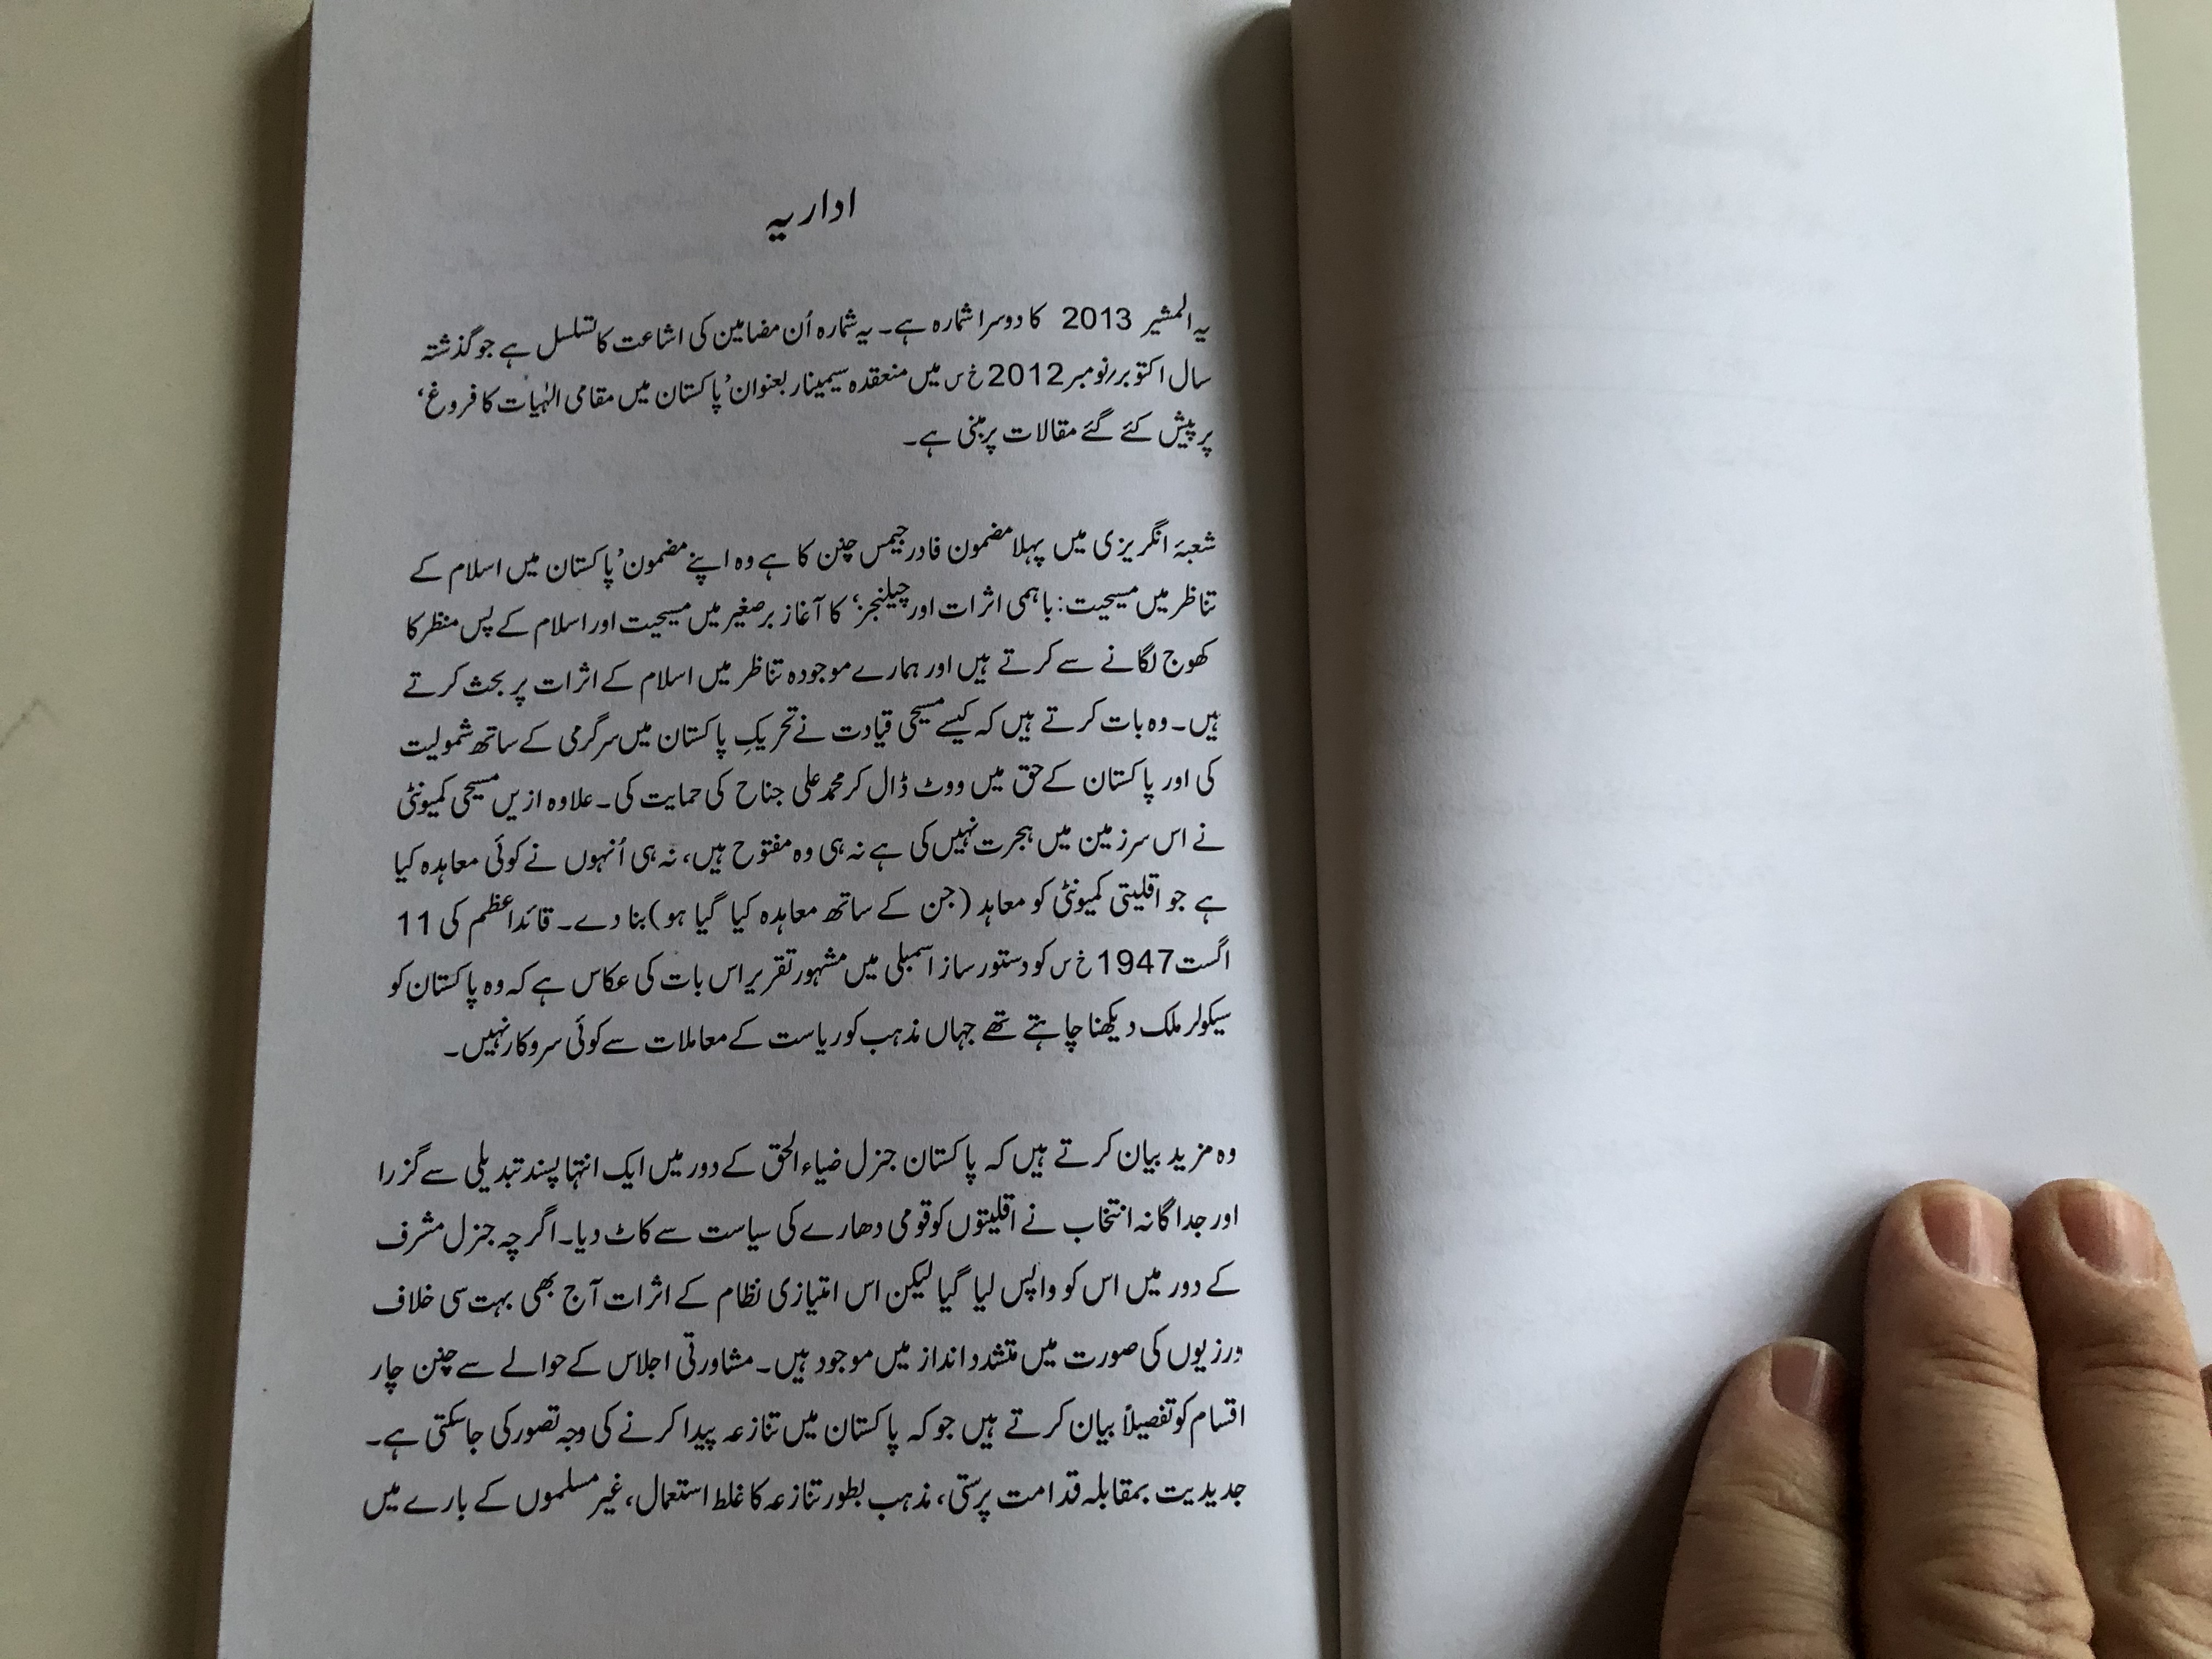 اداریہ
یہ المشیر 2013 کا دوسرا شمارہ ہے۔ یہ شمارہ اُن مضامین کی اشاعت کا تسلسل ہے جو گذشتہ
سال اکتوبر رنومبر 2012 خ س میں منعقدہ سیمینار بعنوان ’پاکستان میں مقامی الٰہیات کا فروغ‘
پر پیش کئے گئے مقالات پر مبنی ہے۔
شعبۂ انگریزی میں پہلا مضمون فادر جیمس چنن کا ہے وہ اپنے مضمون ’پاکستان میں اسلام کے
تناظر میں مسیحیت: باہمی اثرات اور چیلنجز‘ کا آغاز برصغیر میں مسیحیت اور اسلام کے پس منظر کا
کھوج لگانے سے کرتے ہیں اور ہمارے موجودہ تناظر میں اسلام کے اثرات پر بحث کرتے
ہیں۔ وہ بات کرتے ہیں کہ کیسے مسیحی قیادت نے تحریکِ پاکستان میں سرگرمی کے ساتھ شمولیت
کی اور پاکستان کے حق میں ووٹ ڈال کر محمد علی جناح کی حمایت کی۔ علاوہ ازیں مسیحی کمیونٹی
نے اس سرزمین میں ہجرت نہیں کی ہے نہ ہی وہ مفتوح ہیں، نہ ہی اُنہوں نے کوئی معاہدہ کیا
ہے جو اقلیتی کمیونٹی کو معاہد (جن کے ساتھ معاہدہ کیا گیا ہو) بنا دے۔ قائداعظم کی 11
اگست 1947 خ س کو دستور ساز اسمبلی میں مشہور تقریر اس بات کی عکاس ہے کہ وہ پاکستان کو
سیکولر ملک دیکھنا چاہتے تھے جہاں مذہب کو ریاست کے معاملات سے کوئی سروکار نہیں۔
وہ مزید بیان کرتے ہیں کہ پاکستان جنرل ضیاء الحق کے دور میں ایک انتہا پسند تبدیلی سے گزرا
اور جداگانہ انتخاب نے اقلیتوں کو قومی دھارے کی سیاست سے کاٹ دیا۔ اگر چہ جنرل مشرف
کے دور میں اس کو واپس لیا گیا لیکن اس امتیازی نظام کے اثرات آج بھی بہت سی خلاف
ورزیوں کی صورت میں متشدد انداز میں موجود ہیں۔ مشاورتی اجلاس کے حوالے سے چنن چار
اقسام کو تفصیلاً بیان کرتے ہیں جو کہ پاکستان میں تنازعہ پیدا کرنے کی وجہ تصور کی جا سکتی ہے۔
جدیدیت بمقابلہ قدامت پرستی، مذہب بطور تنازعہ کا غلط استعمال، غیر مسلموں کے بارے میں